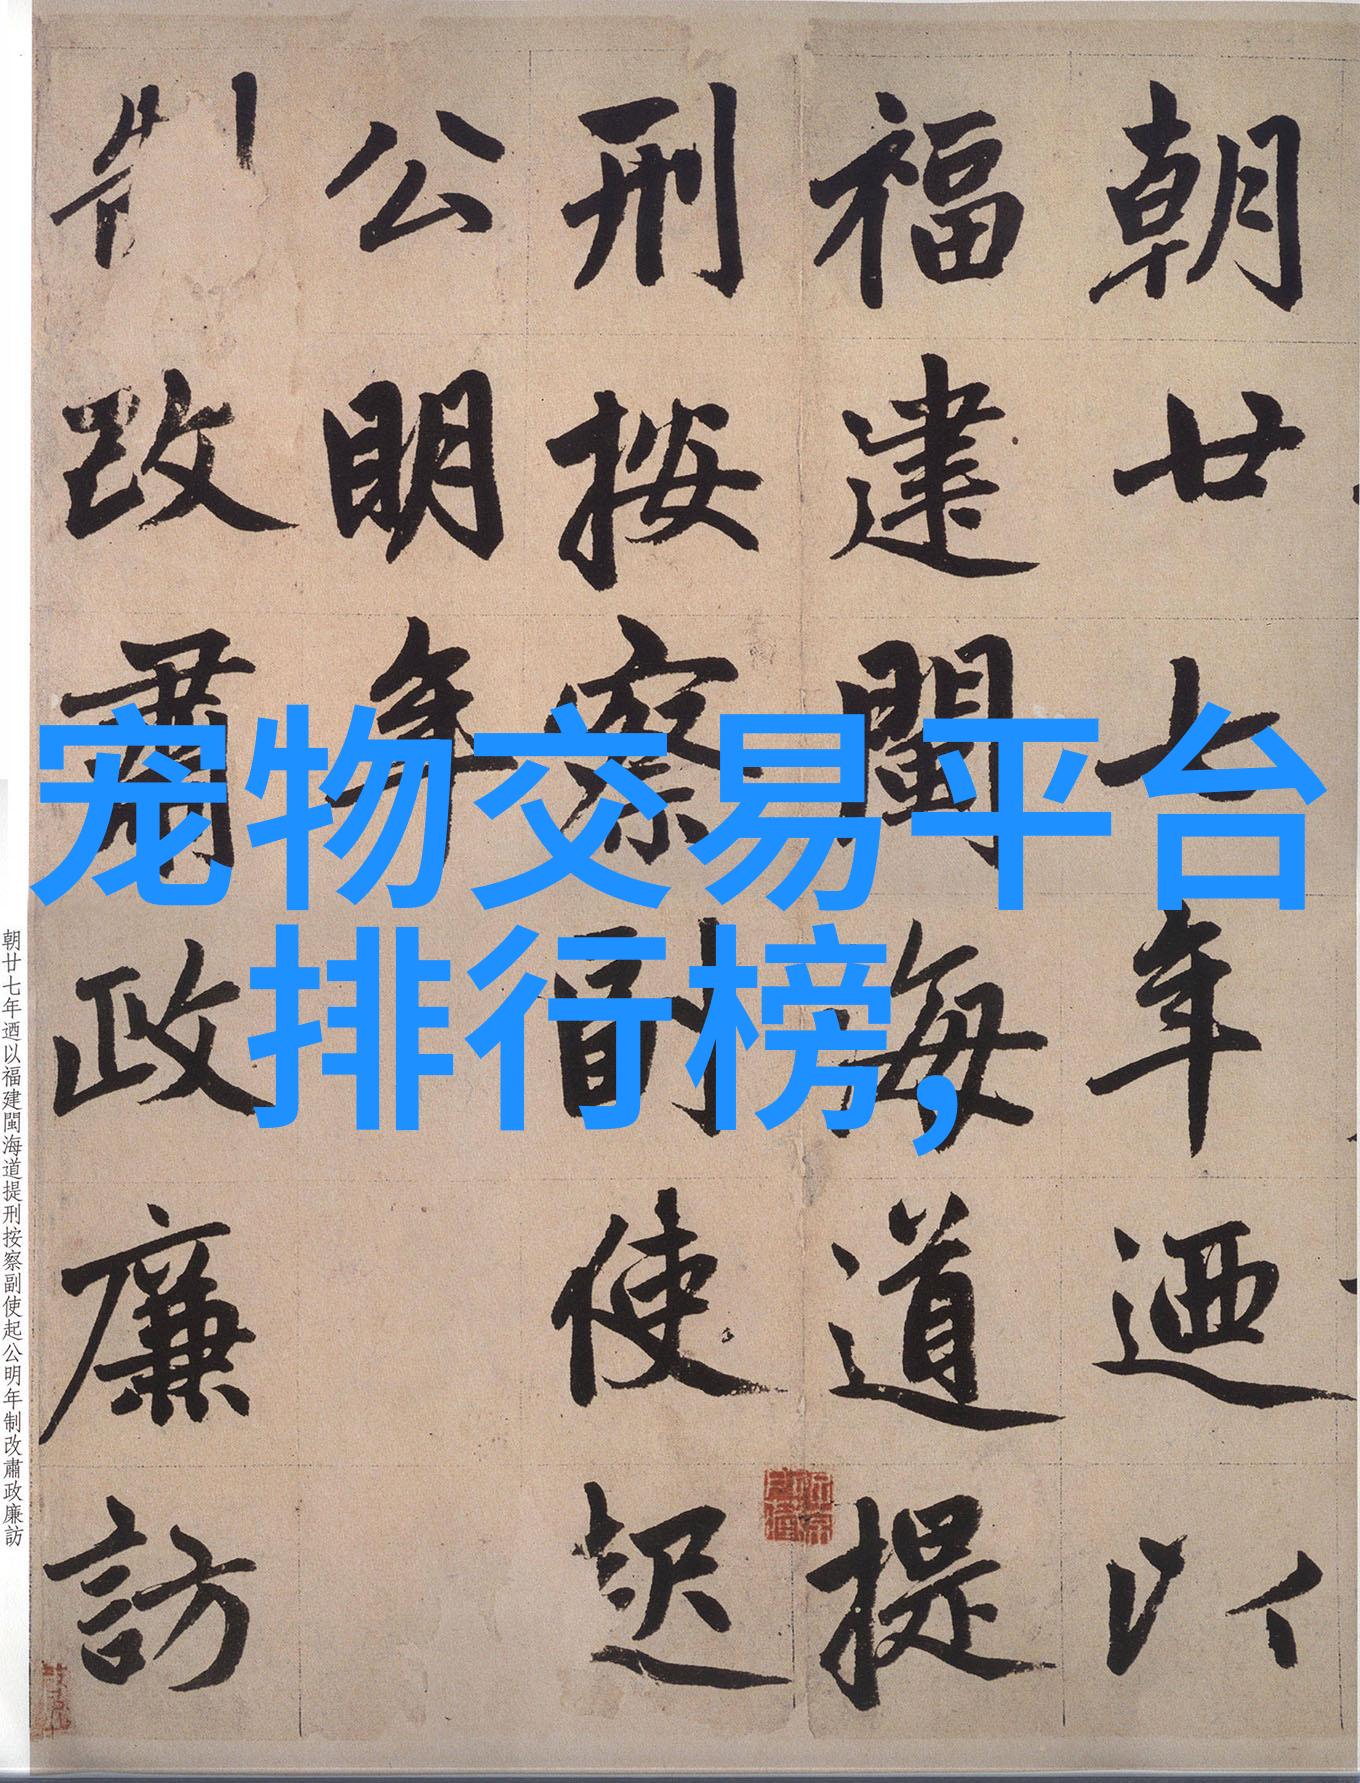 朝廿七年迺以
福建閩海道提
刑按察副使起
公明年
制改肅政廉訪
宠物交易平台
排行榜,
朝廿七年迺以福建閩海道提刑按察副使起公明年制改肅政廉訪